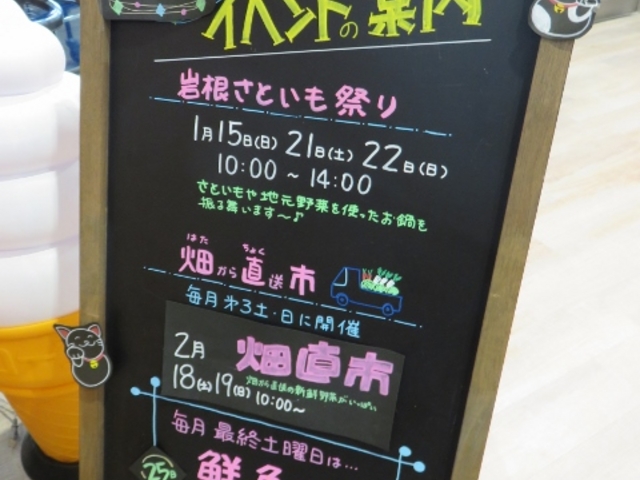 イベントの案内
岩根さといも祭り
1月15日(日) 21日(土) 22日(日)
10:00 ~ 14:00
さといもや地元野菜を使ったお鍋を
振る舞います~♪
はた ちょく
畑から直送市
毎月第3土・日に開催
2月 畑直市
18(土)19(日) 10:00~
畑から直送の新鮮野菜がいっぱい
毎月最終土曜日は…
25日 鮮魚